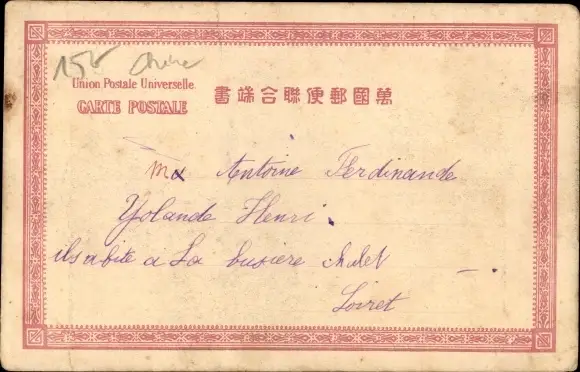 15 Chine
Union Postale Universelle
CARTE POSTALE
書端合聯便郵國萬
Antoine Ferdinande
Yolande Henri
ils abite a La busiere
Loiret